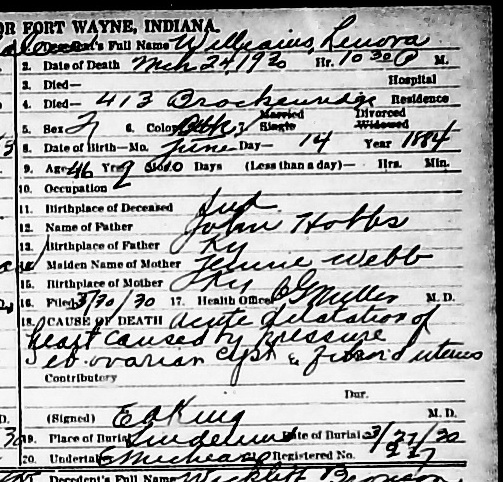 OR FORT WAYNE, INDIANA.
Decedent's Full Name Williams, Lenora
2. Date of Death Mch 24, 1930 Hr. 10 30 P M.
3. Died— Hospital
4. Died— 413 Brackenridge Residence
5. Sex F 6. Color 7. Married Single Divorced Widowed
8. Date of Birth—Mo. June Day— 14 Year 1884
9. Age 46 Yrs 9 Mos 10 Days (Less than a day)— Hrs. Min.
10. Occupation
11. Birthplace of Deceased Ind
12. Name of Father John Hobbs
13. Birthplace of Father Ky
14. Maiden Name of Mother Jennie Webb
15. Birthplace of Mother Ky
16. Filed 3/30/30 17. Health Officer Miller M. D.
18. CAUSE OF DEATH Acute dilatation of
heart caused by pressure
ovarian cyst & fibroid uterus
Contributory
Dur.
(Signed) E A King M. D.
19. Place of Burial Lindenwd Date of Burial 3/27/30
20. Undertak Registered No.
Decedent's Full Name